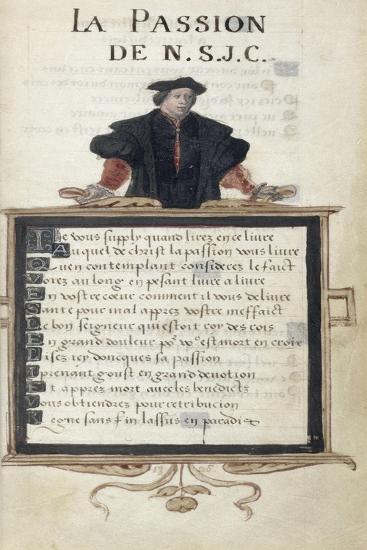 LA PASSION
DE N.S.J.C.
Ie vous supply quand lirez en ce livre
Auquel de christ la passion vous livre
Quen contemplant considerez le faict
Vorez au long en pesant livre a livre
En vostre coeur comment il vous delivre
Sante pour mal apres vostre meffaict
Le bon seigneur qui estoit roy des rois
En grand douleur po⁹ vo⁹ est mort en croix
Lisez icy doncques sa passion
I prenant goust en grand devotion
Et apres mort avec les benedicts
Vous obtiendres pour retribucion
Regne sans fin lassus en paradis